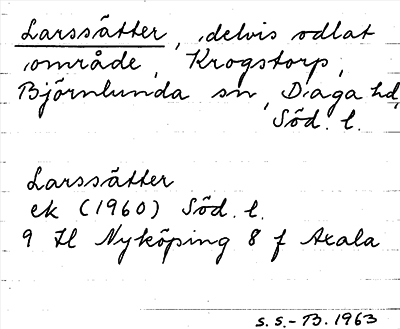 Larssätter, delvis odlat
område, Krogstorp,
Björnlunda sn, Daga hd,
Söd. l.
Larssätter
ek (1960) Söd. l.
9 H Nyköping 8 f Axala
S. S. - B. 1963